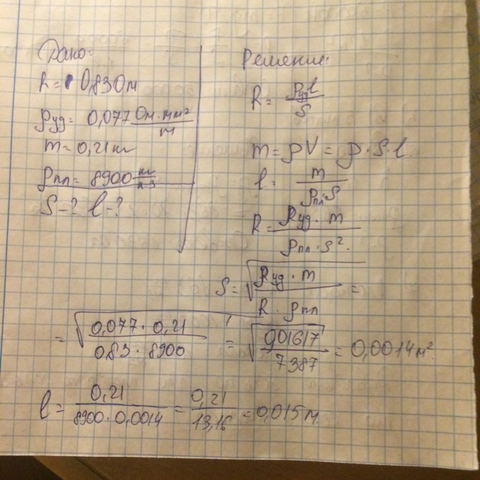 Дано:
R = 0,83 Ом
ρуд = 0,077 Ом·мм²/м
m = 0,21 кг
ρпл = 8900 кг/м³
S-? l-?
Решение:
R = ρуд l / S
m = ρV = ρ·S·l
l = m / ρпл·S
R = ρуд·m / ρпл·S²
S = √(ρуд·m / R·ρпл) =
= √(0,077·0,21 / 083·8900) = √(0,01617 / 7387) = 0,0014 м²
l = 0,21 / 8900·0,0014 = 0,21 / 13,16 = 0,015 м